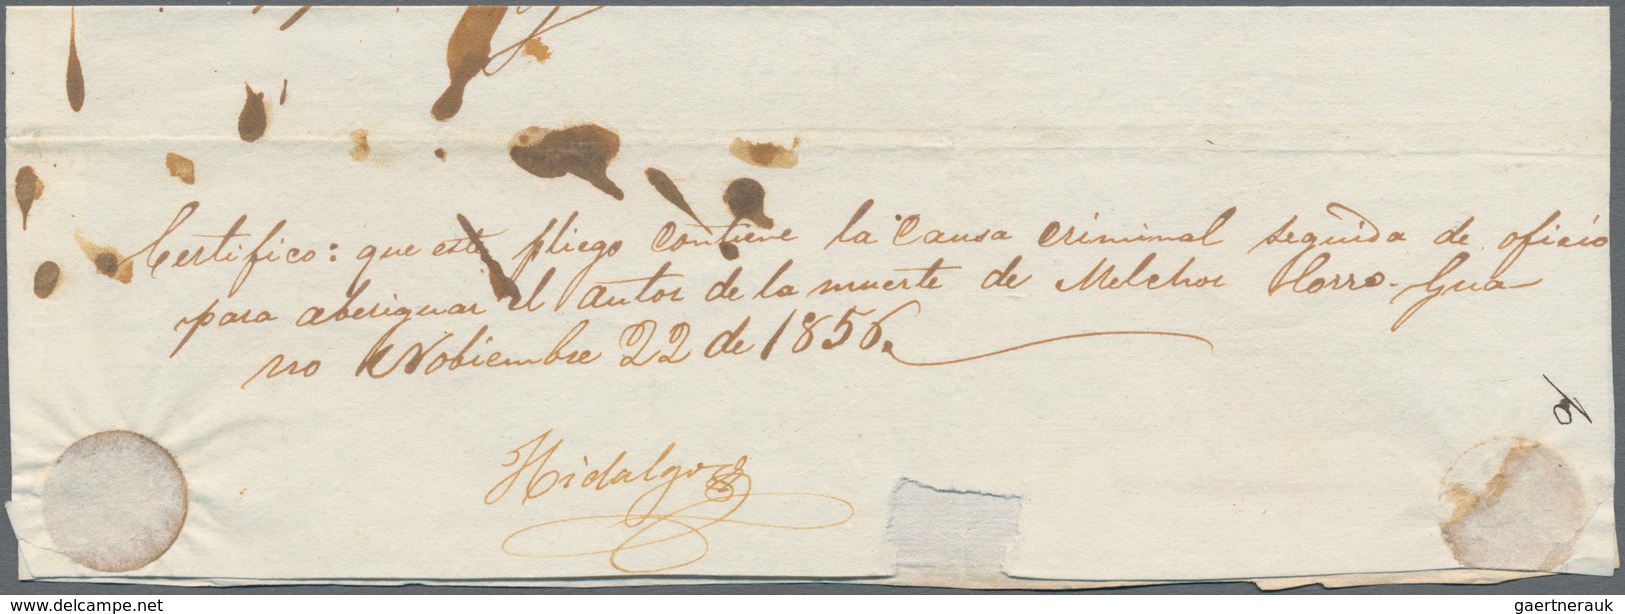 Certifico: que este pliego contiene la Causa criminal seguida de oficio
para aberiguar el autor de la muerte de Melchor Horro. Gua-
no Nobiembre 22 de 1856.
Hidalgo
www.delcampe.net
gaertnerauk